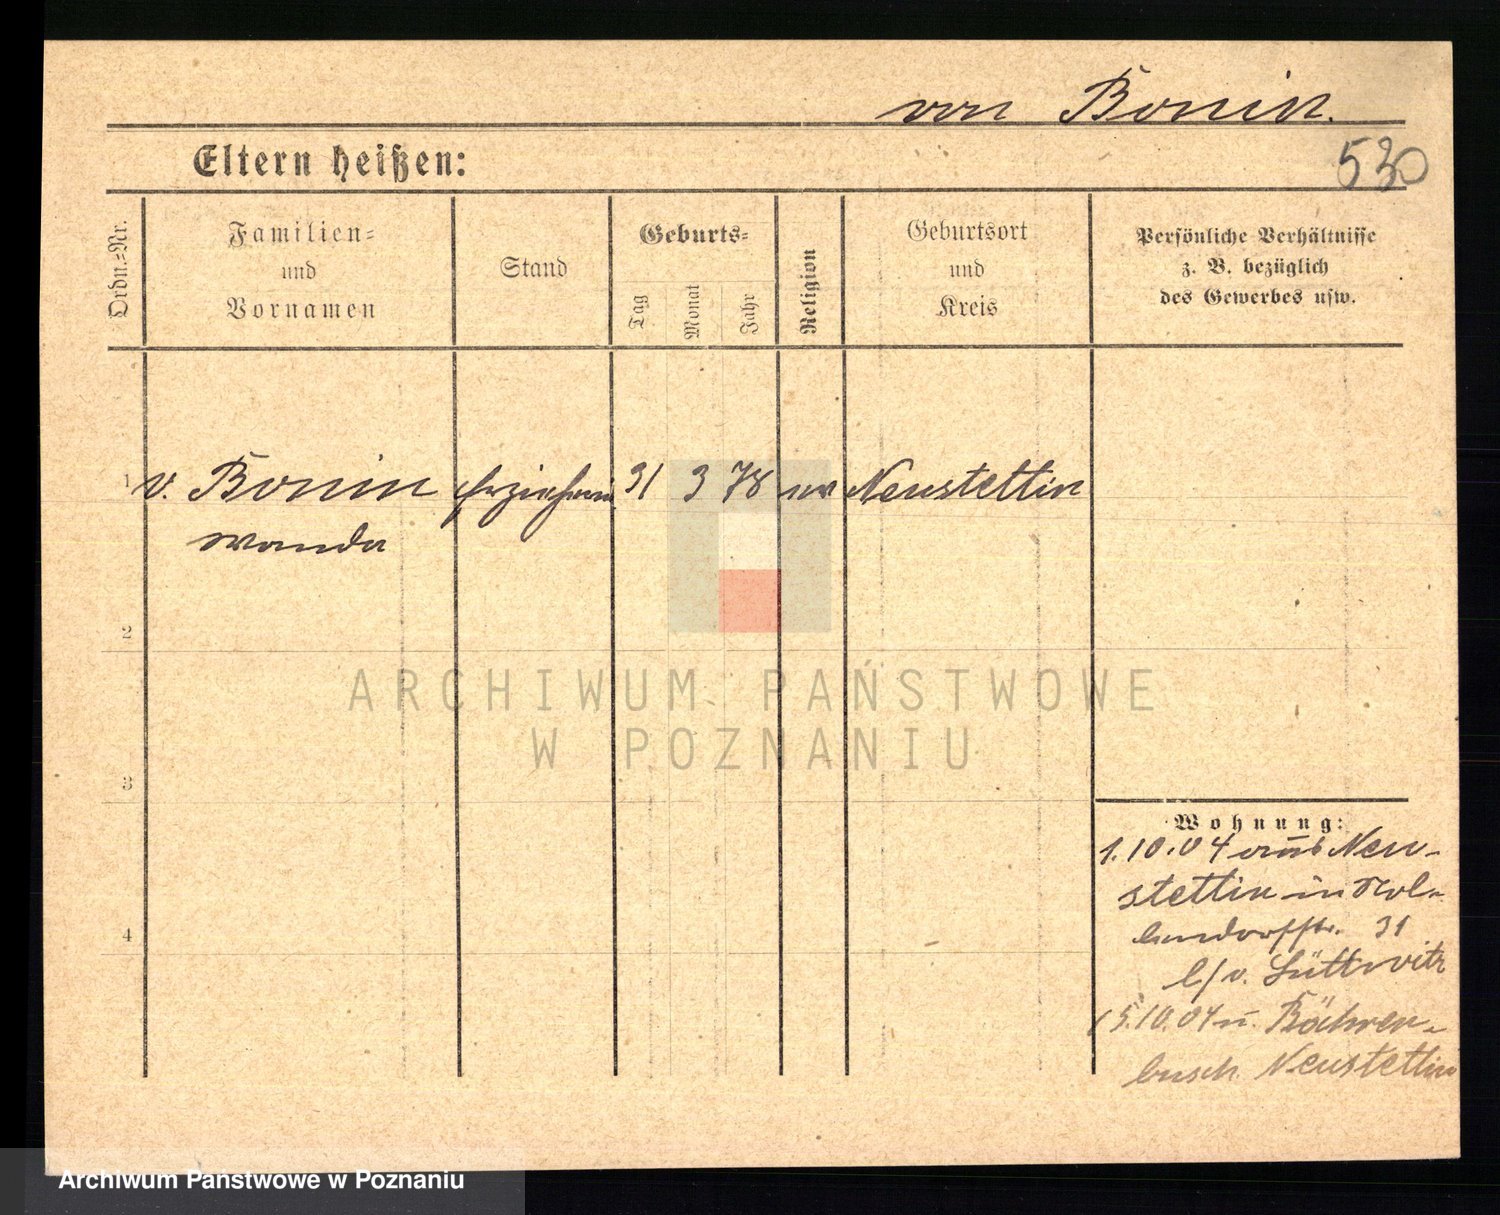 von Bonin.
Eltern heißen:
530
Ordn.=Nr.
Familien=
und
Vornamen
Stand
Geburts=
Tag
Monat
Jahr
Religion
Geburtsort
und
Kreis
Persönliche Verhältnisse
z. B. bezüglich
des Gewerbes usw.
1 v. Bonin Erzieherin 31 3 78 ev Neustettin
Wanda
2
3
4
ARCHIWUM PAŃSTWOWE
W POZNANIU
Wohnung:
1.10.04 aus Neu-
stettin in Nol-
lendorffstr. 31
b/v. Lüttwitz
15.10.04 n. Bähren-
busch Neustettin
Archiwum Państwowe w Poznaniu